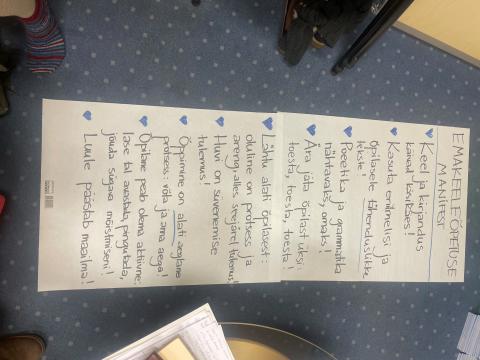 EMAKEELEÕPETUSE
MANIFEST
Keel ja kirjandus
käivad käsikäes!
Kasuta erilmelisi ja
õpilasele tähenduslikke
tekste!
Poeetika ja grammatika
nähtavaks, omaks!
Ära jäta õpilast üksi:
toesta, toesta, toesta!
Lähtu alati õpilasest:
oluline on protsess ja
areng, alles seejärel tulemus!
Huvi on süvenemise
tulemus!
Õppimine on alati aeglane
protsess: võta ja anna aega!
Õpilane peab olema aktiivne:
lase tal arastada, pingutada,
jõuda sügava mõistmiseni!
Luule päästab maailma!